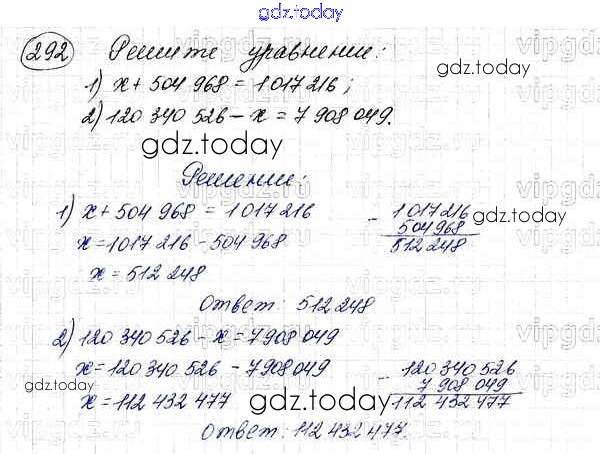 gdz.today
292 Решите уравнение:
1) x + 504 968 = 1 017 216;
gdz.today
2) 120 340 526 - x = 7 908 049.
gdz.today
Решение:
1) x + 504 968 = 1 017 216
x = 1 017 216 - 504 968
x = 512 248
- 1 017 216
504 968
512 248
gdz.today
Ответ: 512 248
2) 120 340 526 - x = 7 908 049
x = 120 340 526 - 7 908 049
x = 112 432 477
- 120 340 526
7 908 049
112 432 477
gdz.today
gdz.today
gdz.today
Ответ: 112 432 477.